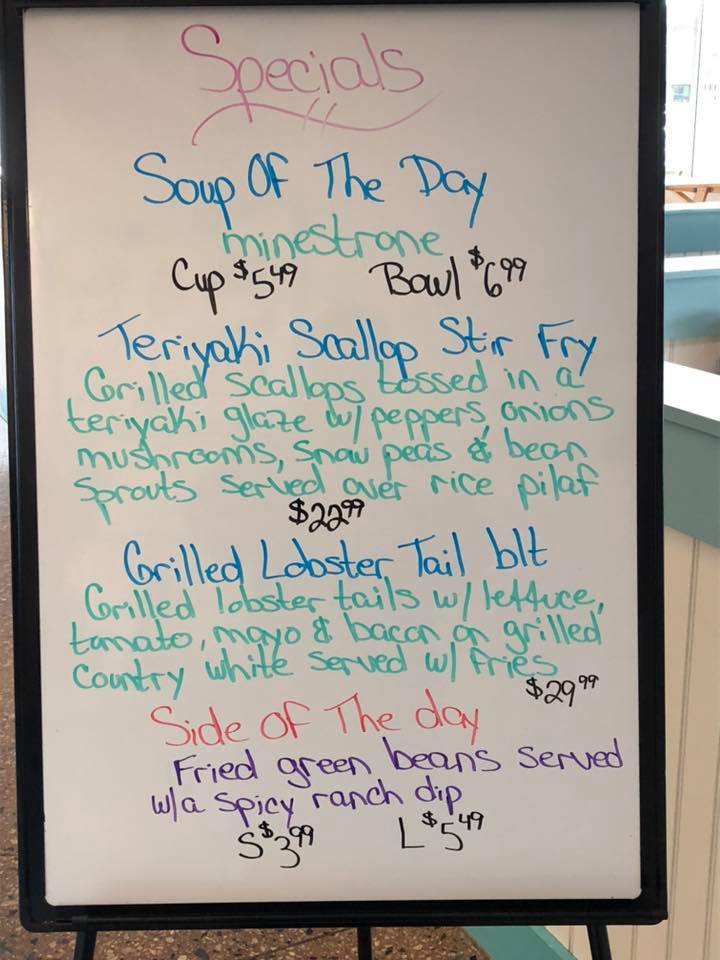 Specials
Soup Of The Day
minestrone
Cup $5.49 Bowl $6.99
Teriyaki Scallop Stir Fry
Grilled scallops tossed in a
teriyaki glaze w/ peppers, onions
mushrooms, snow peas & bean
sprouts served over rice pilaf
$22.99
Grilled Lobster Tail blt
Grilled lobster tails w/ lettuce,
tomato, mayo & bacon on grilled
country white served w/ fries
$29.99
Side of The day
Fried green beans served
w/a spicy ranch dip
S $3.99 L $5.49